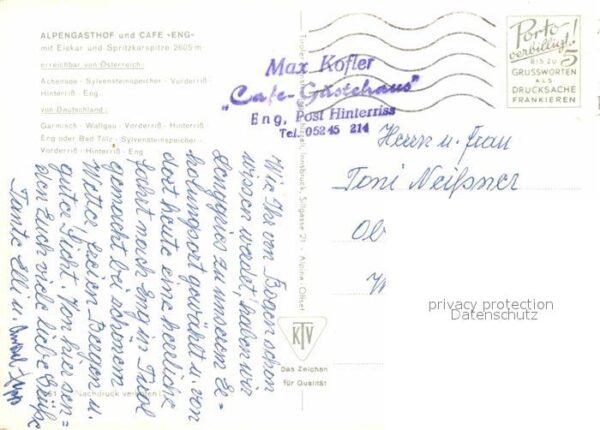 ALPENGASTHOF und CAFE »ENG«
mit Eiskar und Spritzkarspitze 2605 m
erreichbar von Österreich:
Achensee - Sylvensteinspeicher - Vorderriß -
Hinterriß - Eng
von Deutschland:
Garmisch - Wallgau - Vorderriß - Hinterriß
Eng oder Bad Tölz - Sylvensteinspeicher -
Vorderriß - Hinterriß - Eng
Wie Ihr von Bogen schon
wissen werdet, haben wir
zu unserem Er=
holungsort gewählt u. von
dort heute eine herrliche
Fahrt nach Eng in Tirol
gemacht bei schönem
Wetter, freien Bergen u.
guter Sicht. Von hier sen=
den Euch viele liebe Grüße
Tante Elli u.
Nachdruck verboten
Innsbruck, Sillgasse 21 - Alpina Offset
KTV
Das Zeichen
für Qualität
Max Kofler
"Cafe-Gästehaus"
Eng, Post Hinterriss
Tel. 05245 214
Porto
verbilligt!
BIS ZU 5
GRUSSWORTEN
ALS
DRUCKSACHE
FRANKIEREN
Herrn u. Frau
Toni Neißner
Ob
privacy protection
Datenschutz